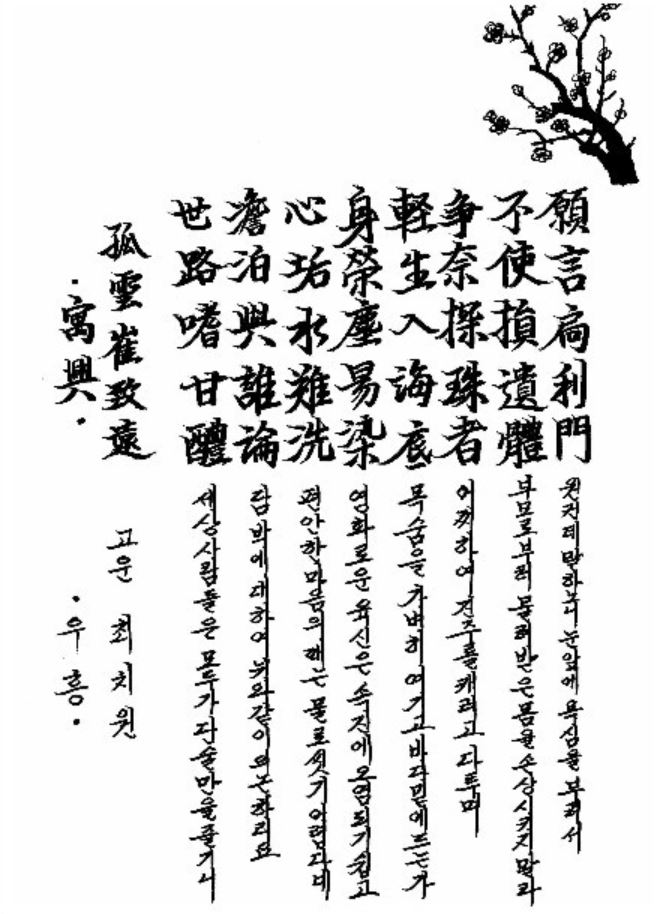 願言扃利門 원컨데 말하노니 눈앞에 욕심을 부려서
不使損遺體 부모로부터 물려받은 몸을 손상시키지 말라
争奈探珠者 어찌하여 진주를 캐려고 다투며
軽生入海底 목숨을 가벼히 여기고 바다밑에 드는가
身榮塵易染 영화로운 육신은 속진에 오염되기 쉽고
心垢水難洗 편안한 마음의 때는 물로씻기 어렵다네
澹泊與誰論 담박에 대하여 뉘와같이 의논하리요
世路嗜甘醴 세상사람들은 모두가 단술마을즐기니
孤雲崔致遠 고운 최치원
·寓興· ·우흥·